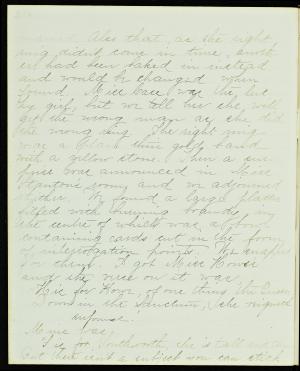 married. Also that, as the right
ring didn't come in time, another
had been baked in instead
and would be changed when
found. Miss Case was the lucky
girl, but we tell her she will
get the wrong man as she did
the wrong ring. The right ring
was a plain thin gold band
with a yellow stone. Then a surprise
was announced in Miss
Stanton's room and we adjourned
thither. We found a large platter
filled with burning brandy in
the centre of which was a
containing cards cut in the form
of interrogation points. We snapped
for them. I got Miss Howe's
and the verse on it was:
H is for Howe, of one thing the Queen
Down in the Sanctum, she reigned
supreme!
Mine was,
S is for Southworth, she is tall and
But there isn't a subject you can stick